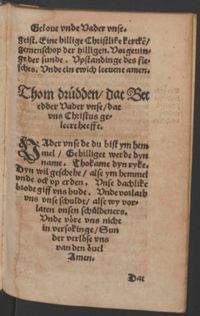 Gelove unde Vader unse.
geist. Eine hillige Christlike kercke/
gemenschop der hilligen. Vorgevin-
ge der sunde. Upstandinge des fle-
sches. Unde ein ewich levent amen.
Thom drüdden/ dat Bet
edder Vader unse/ dat
uns Christus ge-
leert hefft.
VAder unse de du bist yn hem
mel/ Gehilliget werde dyn
name. Thokame dyn ryke.
Dyn wil geschehe/ alse ym hemmel
unde ock up erden. Unse dachlike
brodt giff uns hude. Unde vorlath
uns unse schuldt/ alse wy vor-
laten unsen schüldeners.
Unde vöre uns nicht
in versokinge/ Sun
der verlöse uns
van den övel
Amen.
Dat